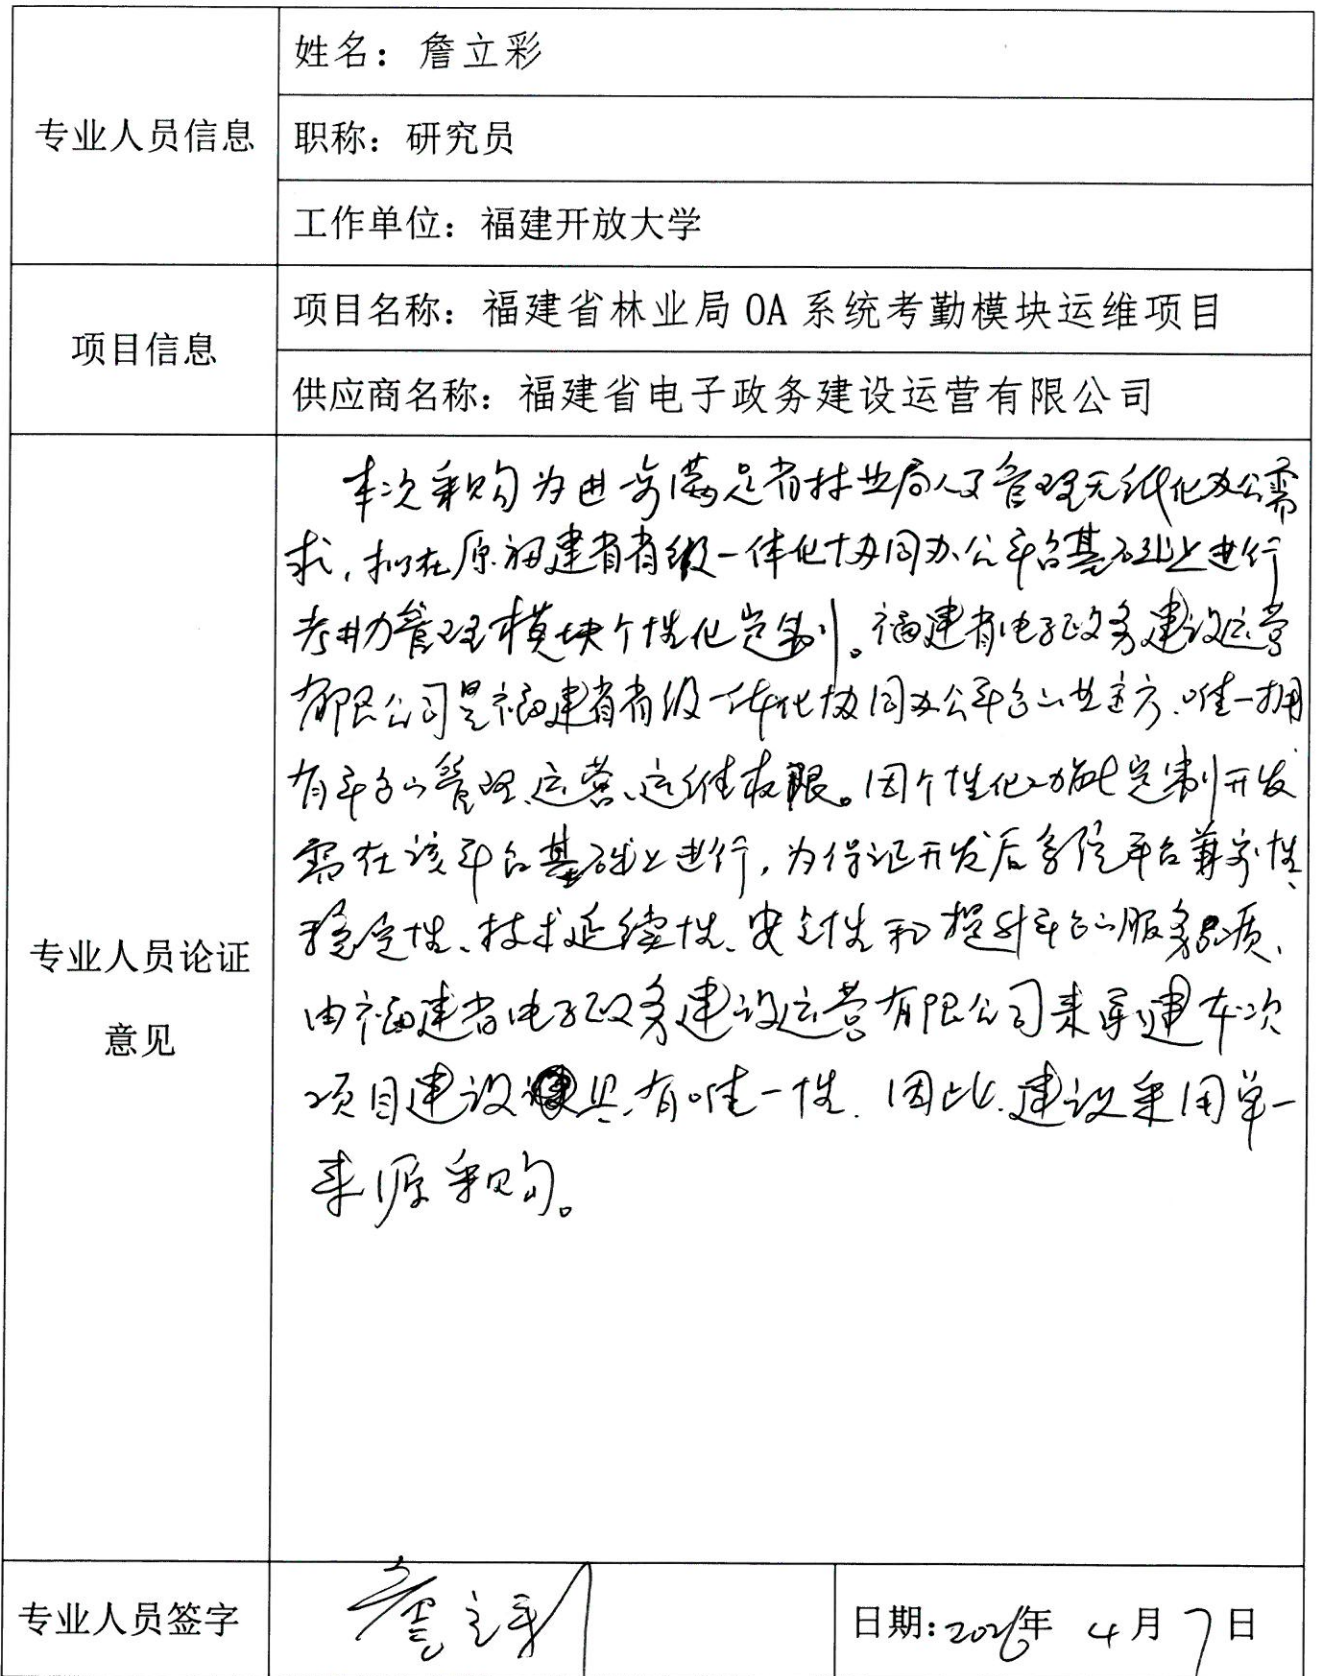 专业人员信息
姓名：詹立彩
职称：研究员
工作单位：福建开放大学
项目信息
项目名称：福建省林业局 OA 系统考勤模块运维项目
供应商名称：福建省电子政务建设运营有限公司
专业人员论证
意见
本次采购为进一步满足省林业局人事管理无纸化办公需
求，拟在原福建省省级一体化协同办公平台基础上进行
考勤管理模块个性化定制。福建省电子政务建设运营
有限公司是福建省省级一体化协同办公平台的业主方、唯一拥
有平台的管理、运营、运维权限。因个性化功能定制开发
需在该平台基础上进行，为保证开发后系统平台兼容性、
稳定性、技术延续性、安全性和提升平台的服务品质、
由福建省电子政务建设运营有限公司来承建本次
项目建设具有唯一性. 因此、建议采用单一
来源采购。
专业人员签字
詹立彩
日期: 年 4 月 7 日